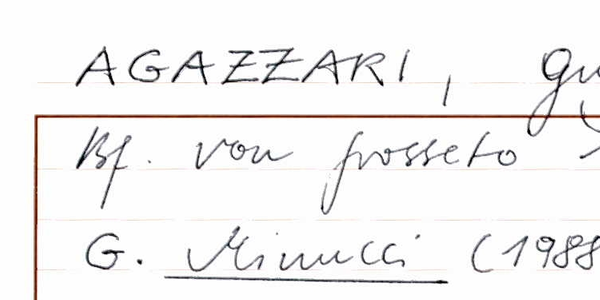 AGAZZARI, Gu
Bf. von Grosseto
G. Minucci (1988